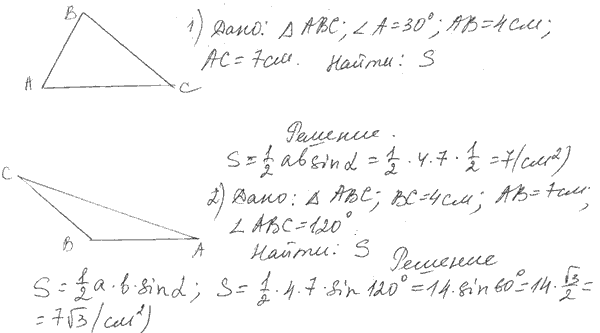 B
1) Дано: △ ABC; ∠ A = 30°; AB = 4 см;
A
C
AC = 7 см. Найти: S
Решение.
S = 1/2 ab sin α = 1/2 · 4 · 7 · 1/2 = 7 (см²)
C
2) Дано: △ ABC; BC = 4 см; AB = 7 см;
∠ ABC = 120°
B
A
Найти: S
Решение
S = 1/2 a · b · sin α; S = 1/2 · 4 · 7 · sin 120° = 14 · sin 60° = 14 · √3/2 =
= 7√3 (см²)